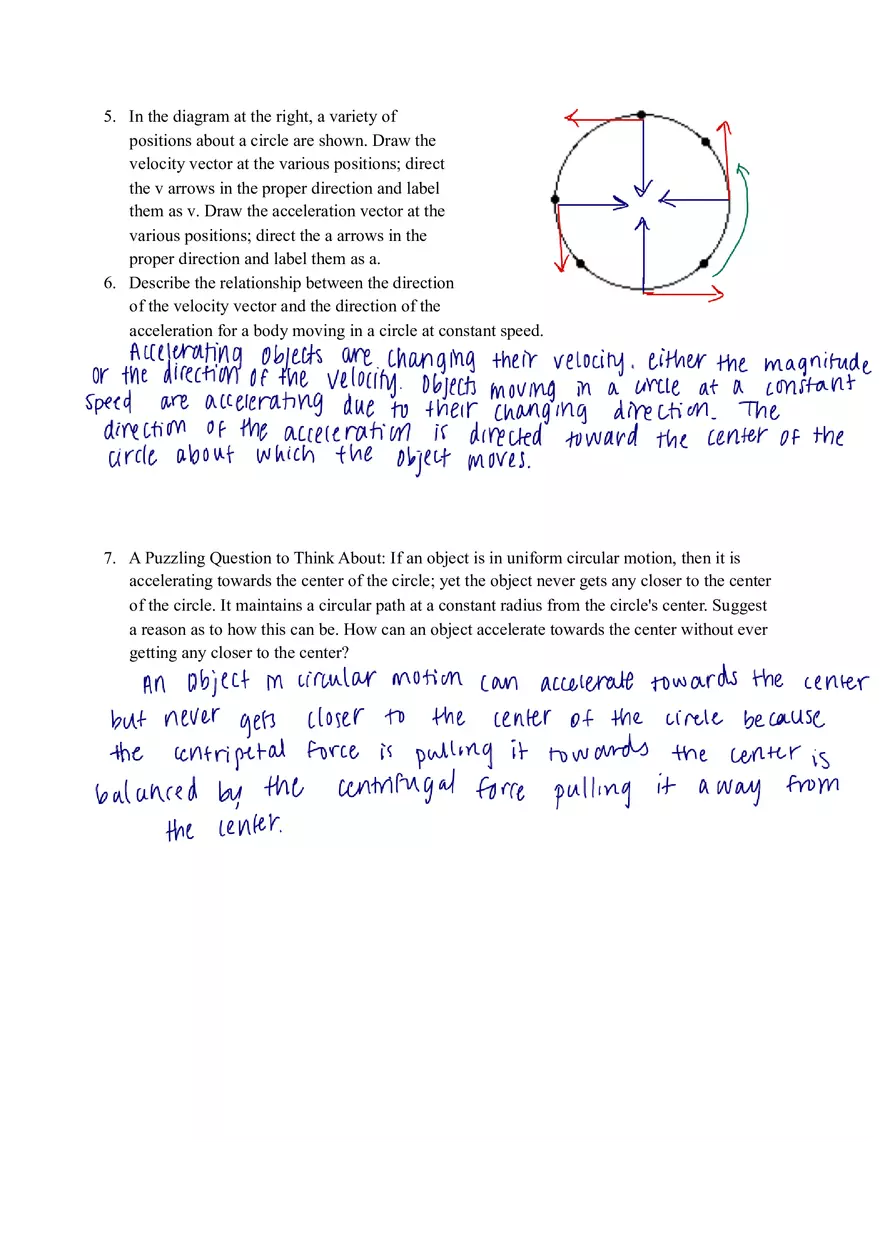 5. In the diagram at the right, a variety of
positions about a circle are shown. Draw the
velocity vector at the various positions; direct
the v arrows in the proper direction and label
them as v. Draw the acceleration vector at the
various positions; direct the a arrows in the
proper direction and label them as a.
6. Describe the relationship between the direction
of the velocity vector and the direction of the
acceleration for a body moving in a circle at constant speed.
Accelerating objects are changing their velocity. either the magnitude
or the direction of the velocity. Objects moving in a circle at a constant
speed are accelerating due to their changing direction. The
direction of the acceleration is directed toward the center of the
circle about which the object moves.
7. A Puzzling Question to Think About: If an object is in uniform circular motion, then it is
accelerating towards the center of the circle; yet the object never gets any closer to the center
of the circle. It maintains a circular path at a constant radius from the circle's center. Suggest
a reason as to how this can be. How can an object accelerate towards the center without ever
getting any closer to the center?
An object in circular motion can accelerate towards the center
but never gets closer to the center of the circle because
the centripetal force is pulling it towards the center is
balanced by the centrifugal force pulling it away from
the center.